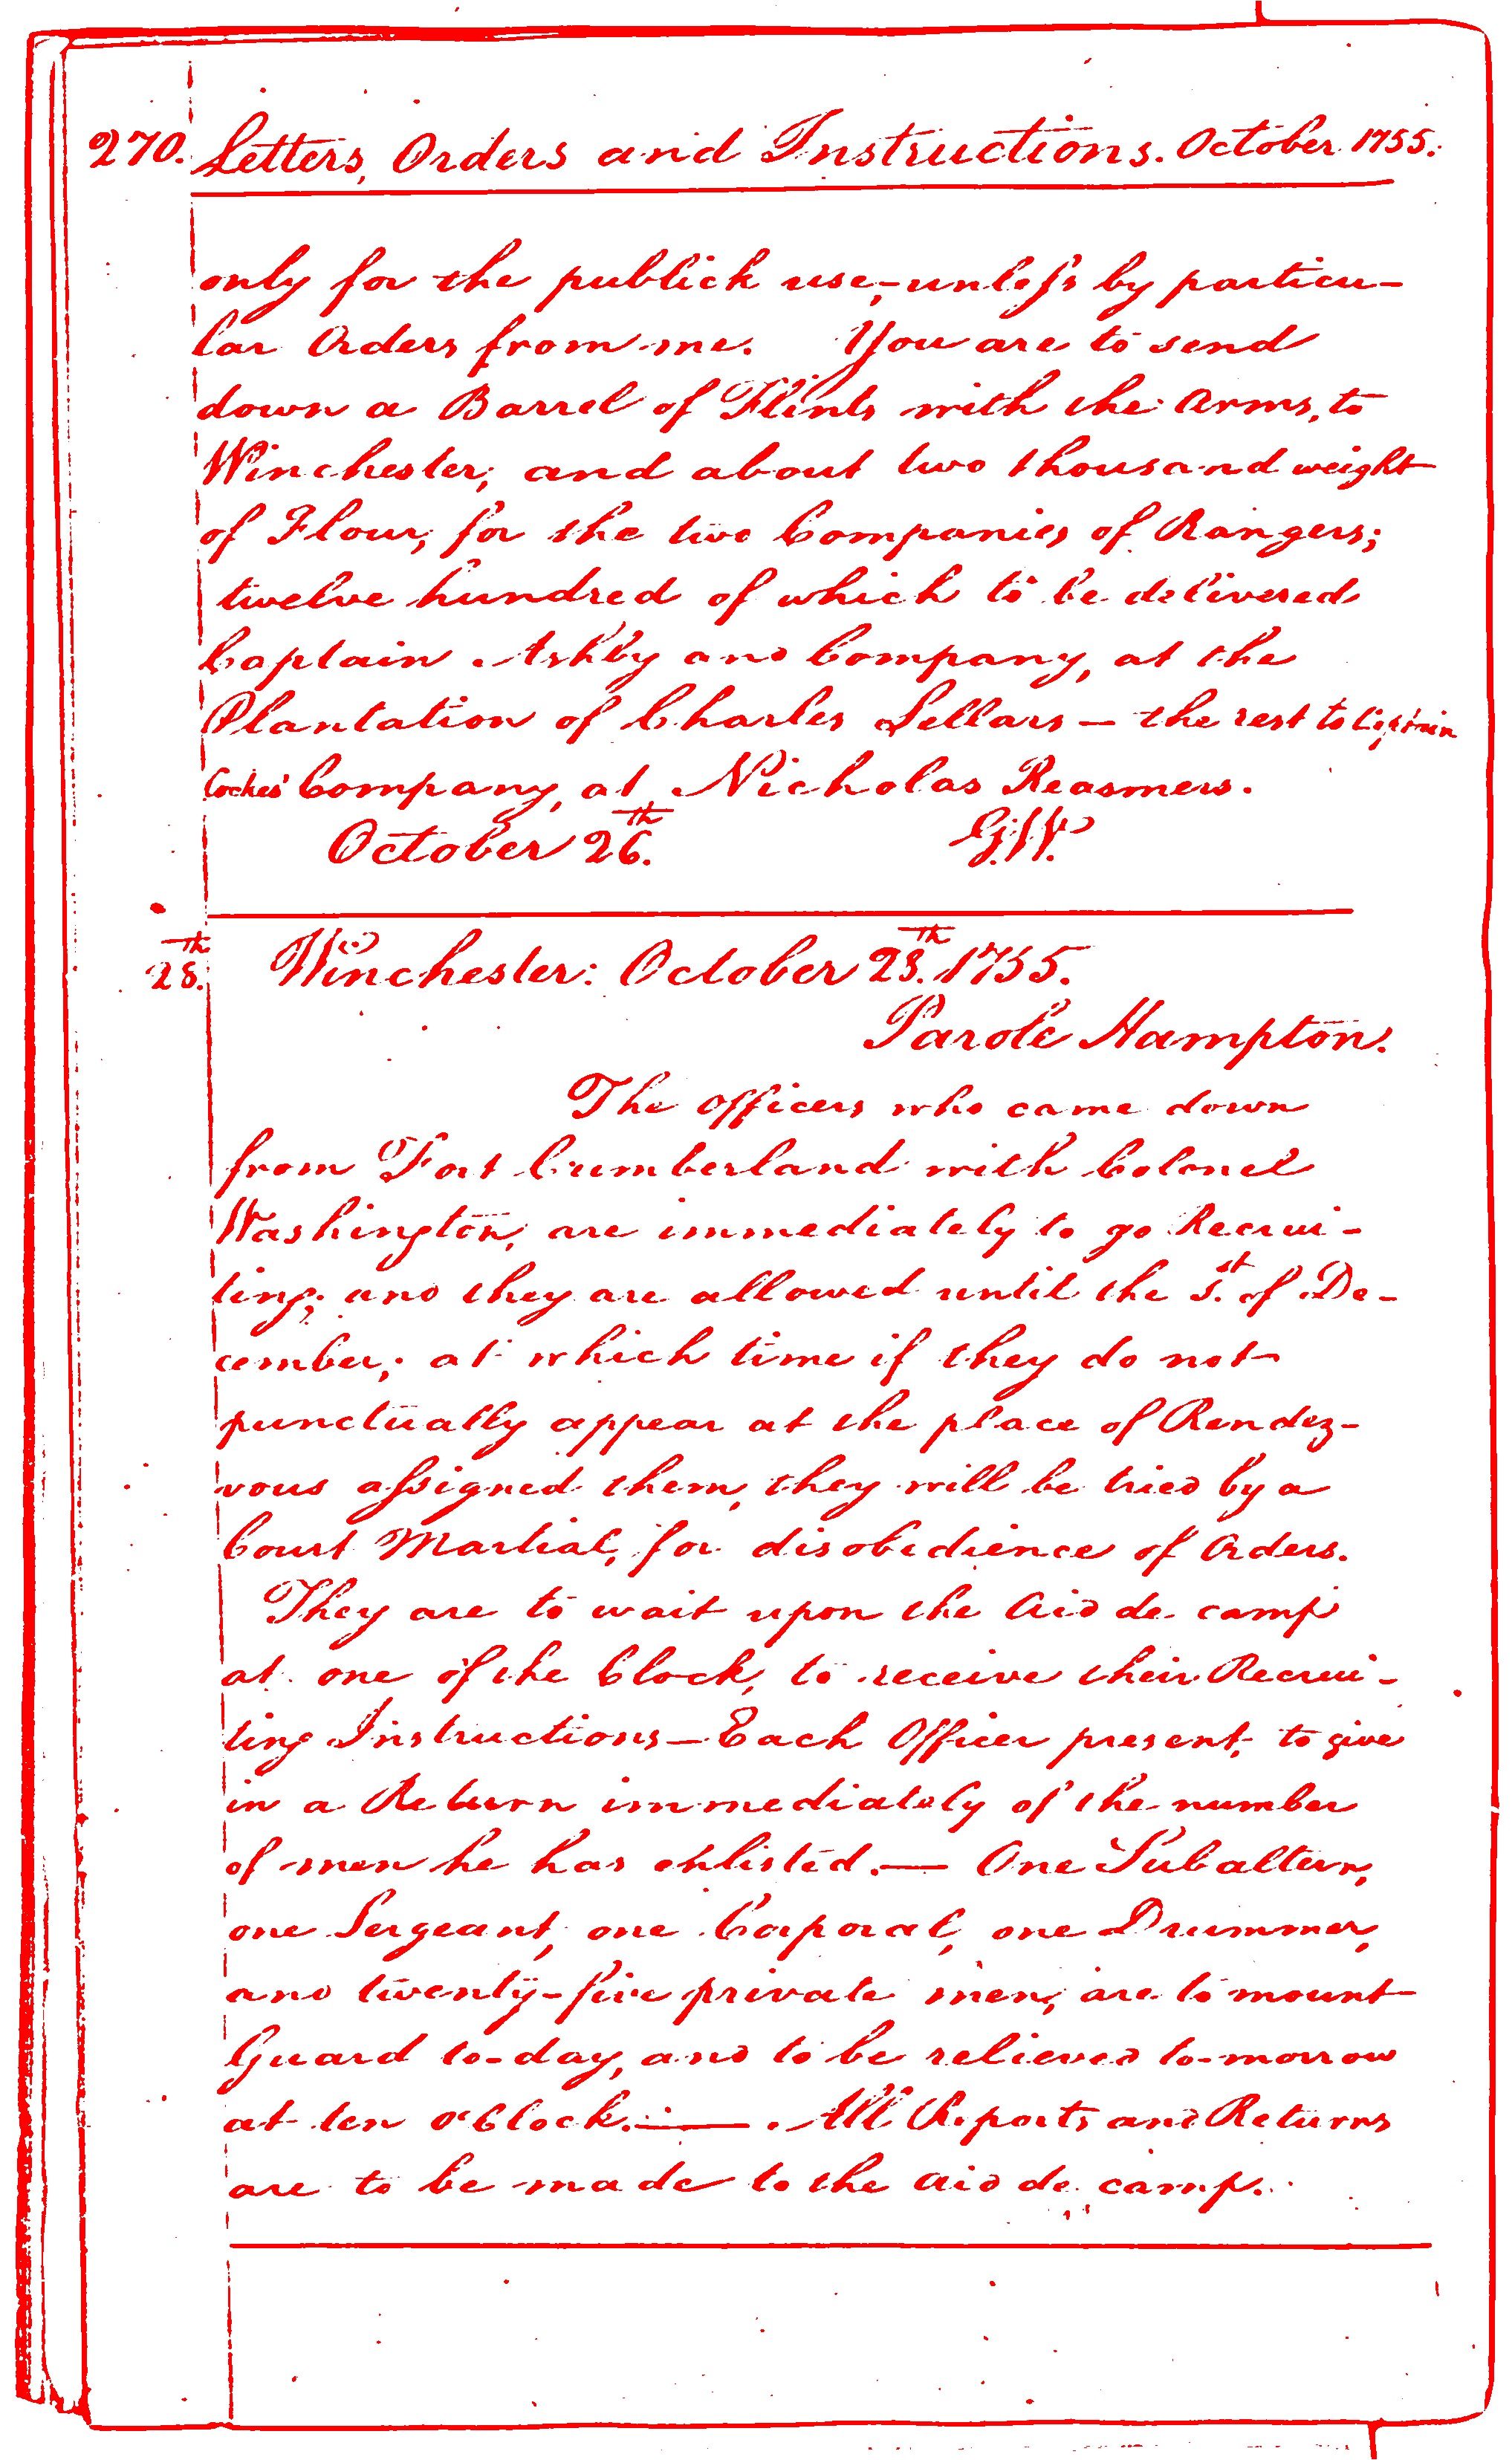 270. Letters, Orders and Instructions. October 1755.
only for the publick use,-unless by particu-
lar Orders from me. You are to send
down a Barrel of Flints with the Arms, to
Winchester; and about two thousand weight
of Flour, for the two Companies of Rangers;
twelve hundred of which to be delivered
Captain Ashby and Company, at the
Plantation of Charles Sellars - the rest to Captain
Cockes' Company, at Nicholas Reasmers.
October 26th. G.W.
28th. Winchester: October 28th. 1755.
Parole Hampton.
The Officers who came down
from Fort Cumberland with Colonel
Washington, are immediately to go Recrui-
ting; and they are allowed until the 1st. of De-
cember; at which time if they do not
punctually appear at the place of Rendez-
vous assigned them, they will be tried by a
Court Martial, for disobedience of Orders.
They are to wait upon the Aid de camp
at one of the Clock, to receive their Recrui-
ting Instructions - Each Officer present, to give
in a Return immediately of the number
of men he has enlisted. — One Subaltern,
one Sergeant, one Corporal, one Drummer,
and twenty-five private men, are to mount
Guard to-day, and to be relieved to-morrow
at ten o'Clock. — All Reports and Returns
are to be made to the Aid de camp.